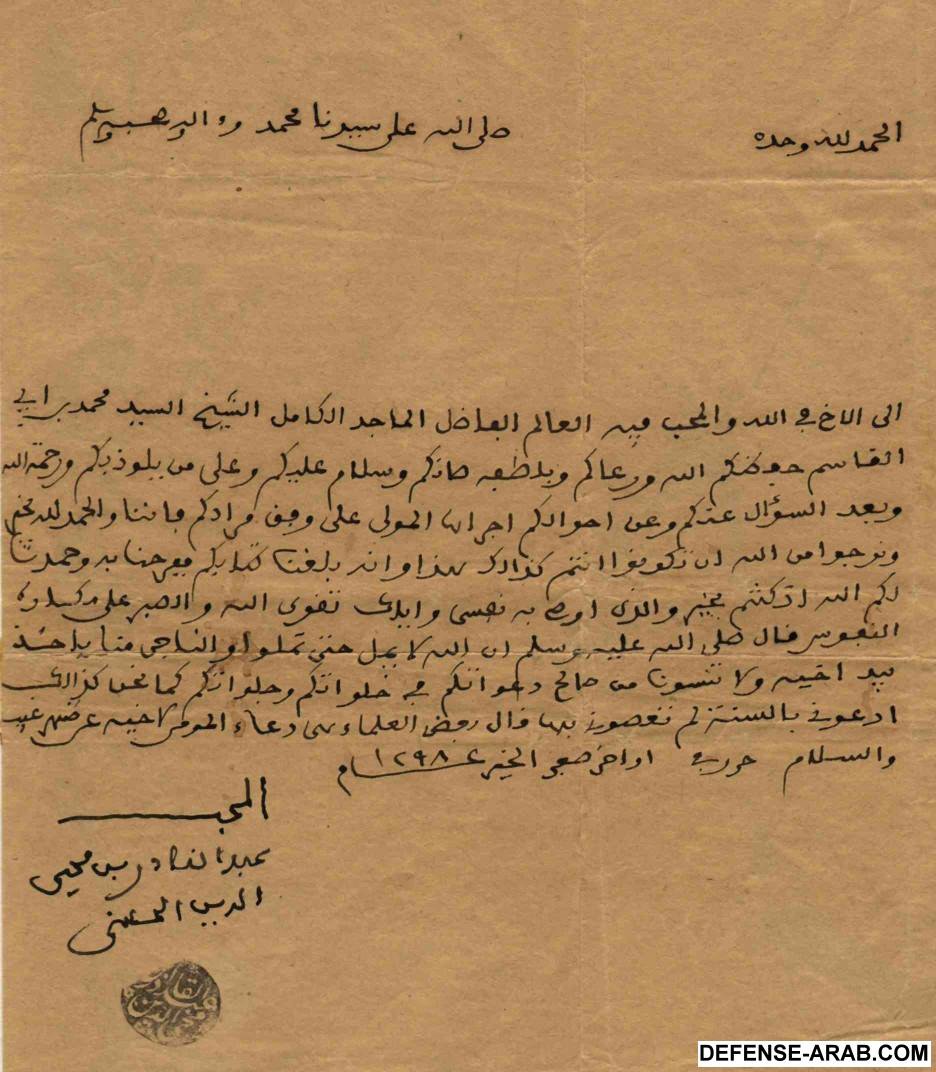 الحمد لله وحده
صلى الله على سيدنا محمد وءاله وصحبه وسلم
الى الاخ في الله والمحب فيه العالم الفاضل الماجد الكامل الشيخ السيد محمد بن ابي
القاسم حفظكم الله ورعاكم وبلطفه وسلام عليكم وعلى من يلوذ بكم ورحمة الله
وبعد السؤال عنكم وعن احوالكم اجراها المولى على وفق مرادكم فاننا والحمد لله بخير
ونرجوا من الله ان تكونوا انتم كذالك هذا وانه بلغنا كتابكم ففرحنا به وحمدنا
لكم الله اذ كنتم بخير والذي اوصي به نفسي واياك تقوى الله والصبر على
النفوس قال صلى الله عليه وسلم ان الله لا يمل حتى تملوا والناجي منا ياخذ
بيد اخيه ولا تنسونا من صالح دعواتكم في خلواتكم وجلواتكم كما نحن كذالك
ادعوني بالسنة لم تعصوني بها قال بعض العلماء هي دعاء المومن لاخيه عن ظهر غيب
والسلام حرر في اواخر صفر الخير ١٢٩٨ عام
المحب
عبد القادر بن محيي
الدين الحسني
عبد القادر بن محيي الدين
DEFENSE-ARAB.COM